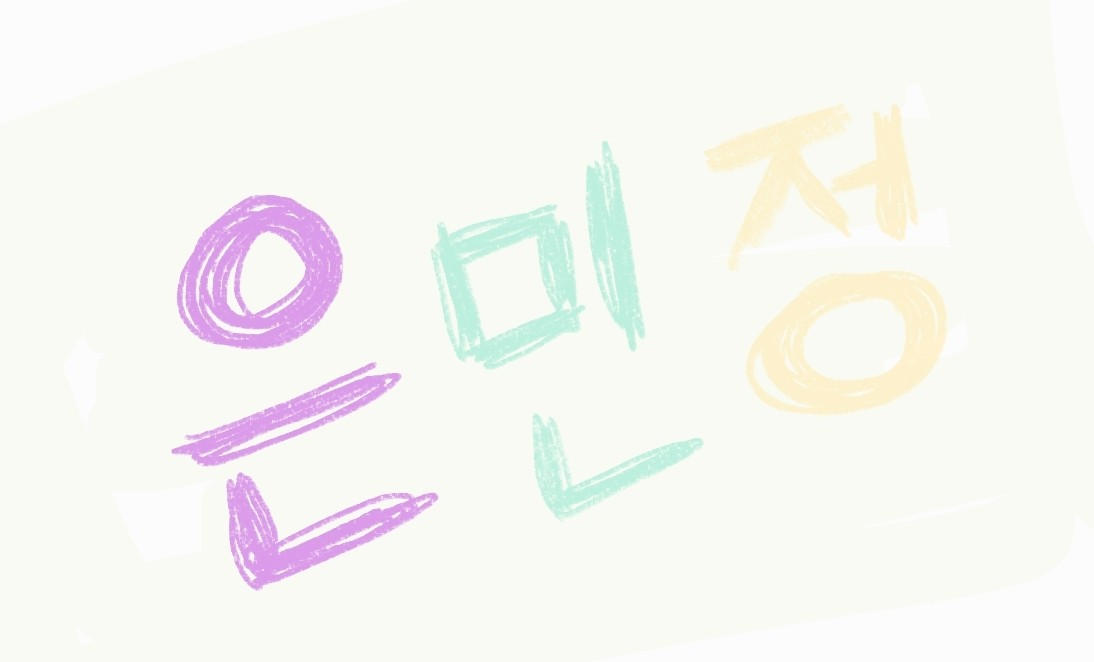 은민정